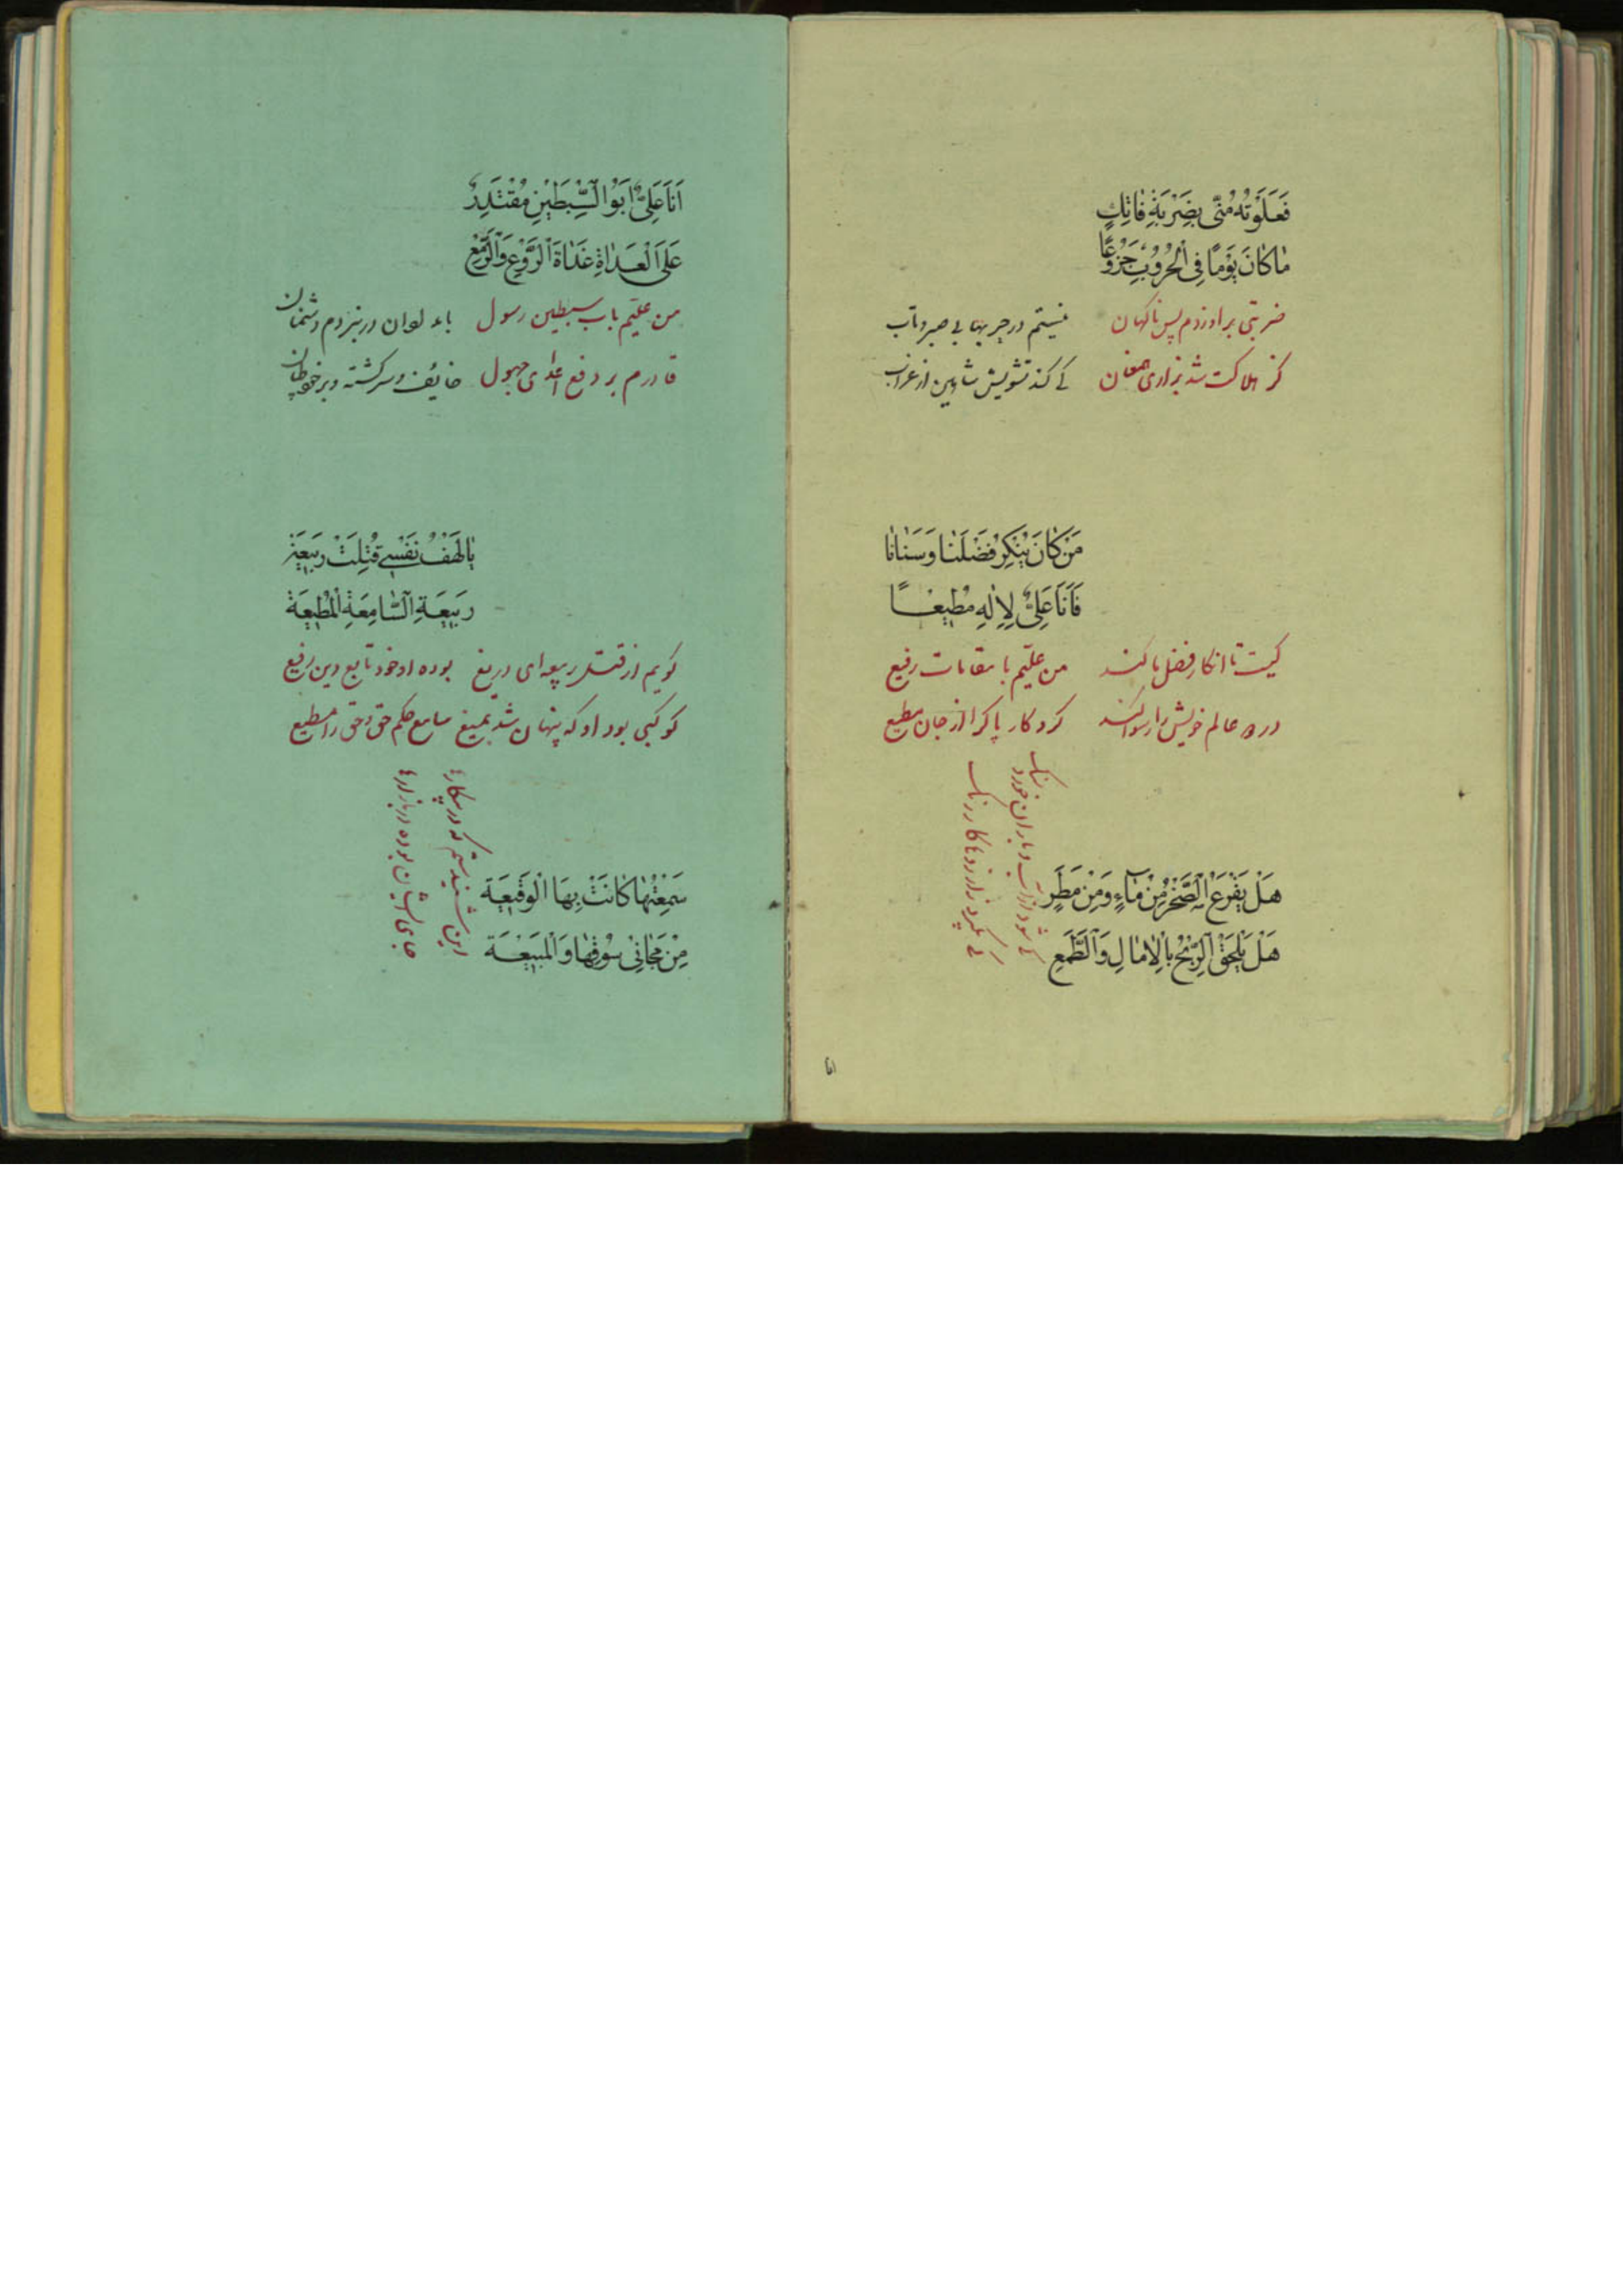 فَعَلَوْتُهُ مِنّی بِضَرْبَةِ فَاتِكٍ
مَا كَانَ يَوْمًا فِی الْحُرُوبِ جَزُوعًا
ضربتی بر او زدم پس ناکهان نیستم در حربها بی صبر و تاب
کز هلاکت شد بزاری همعنان کی کند تشویش شاهین از غراب
مَنْ كَانَ يُنْكِرُ فَضْلَنَا وَسَنَانَا
فَاَنَا عَلِیٌّ لِلْاِلٰهِ مُطِيعًا
کیست تا انکار فضل ما کند من علیّم با مقامات رفیع
در عالم خویش را رسوا کند کردکار پاک را از جان مطیع
هَلْ يَقْرَعُ الصَّخْرَ مِنْ مَاءٍ وَمِنْ مَطَرٍ
هَلْ يَلْحَقُ الرِّيحُ بِالْاٰمَالِ وَالطَّمَعِ
کی شود از آب و باران خورد سنک
انا
اَنَا عَلِیٌّ اَبُو السِّبْطَيْنِ مُقْتَدِرٌ
عَلَی الْعُدَاةِ غَدَاةَ الرَّوْعِ وَالزَّمَعِ
من علیّم باب سبطین رسول در نبردم دشمنان
قادرم بر دفع اعدای جهول خائف و سرکشته و برخود طپان
يَا لَهْفَ نَفْسِی قُتِلَتْ رَبِيعَة
رَبِيعَةِ السَّامِعَةِ الْمُطِيعَة
کویم از قتل ربیعه ای دریغ بوده او خود تابع دین رفیع
کوکبی بود او که پنهان شد بمیغ سامع حکم حق و حق را مطیع
سَمِعْتُهَا كَانَتْ بِهَا الْوَقِيعَة
مِنْ مَحَانِی سُوقِهَا وَالْمَبِيعَة
این شنیدستم که در پیکارها
جای ایشان بوده در بازارها